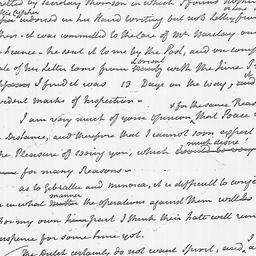 by Secretary Thomson in which I found
his Cyphers
endorsed in his Hand Writing but not
it was committed to the care of Mr. Barclay
France – he sent it to me by the Post, and on comp
date of his Letter from L'Orient with the Time I
I find it was 13 Days on the way, and
evident marks of Inspection –
& for the same Reas
I am very much of your opinion that Peace
a Distance, and therefore that I cannot soon expect
much desire
the Pleasure of seeing you, which
for many Reasons –
as to Gibraltar and Minorca, it is difficult to conj
manner
in what the operations against them will
for my own part I think their fate will rem
suspence for some time yet.
The Dutch certainly do not want Spirit, and